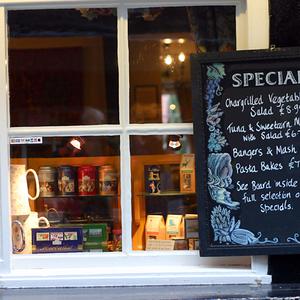 SPECIAL
Chargrilled Vegetab
Salad £8.9
Tuna & Sweetcorn M
with Salad £6
Bangers & Mash
Pasta Bakes £7
See Board inside
full selection o
Specials.